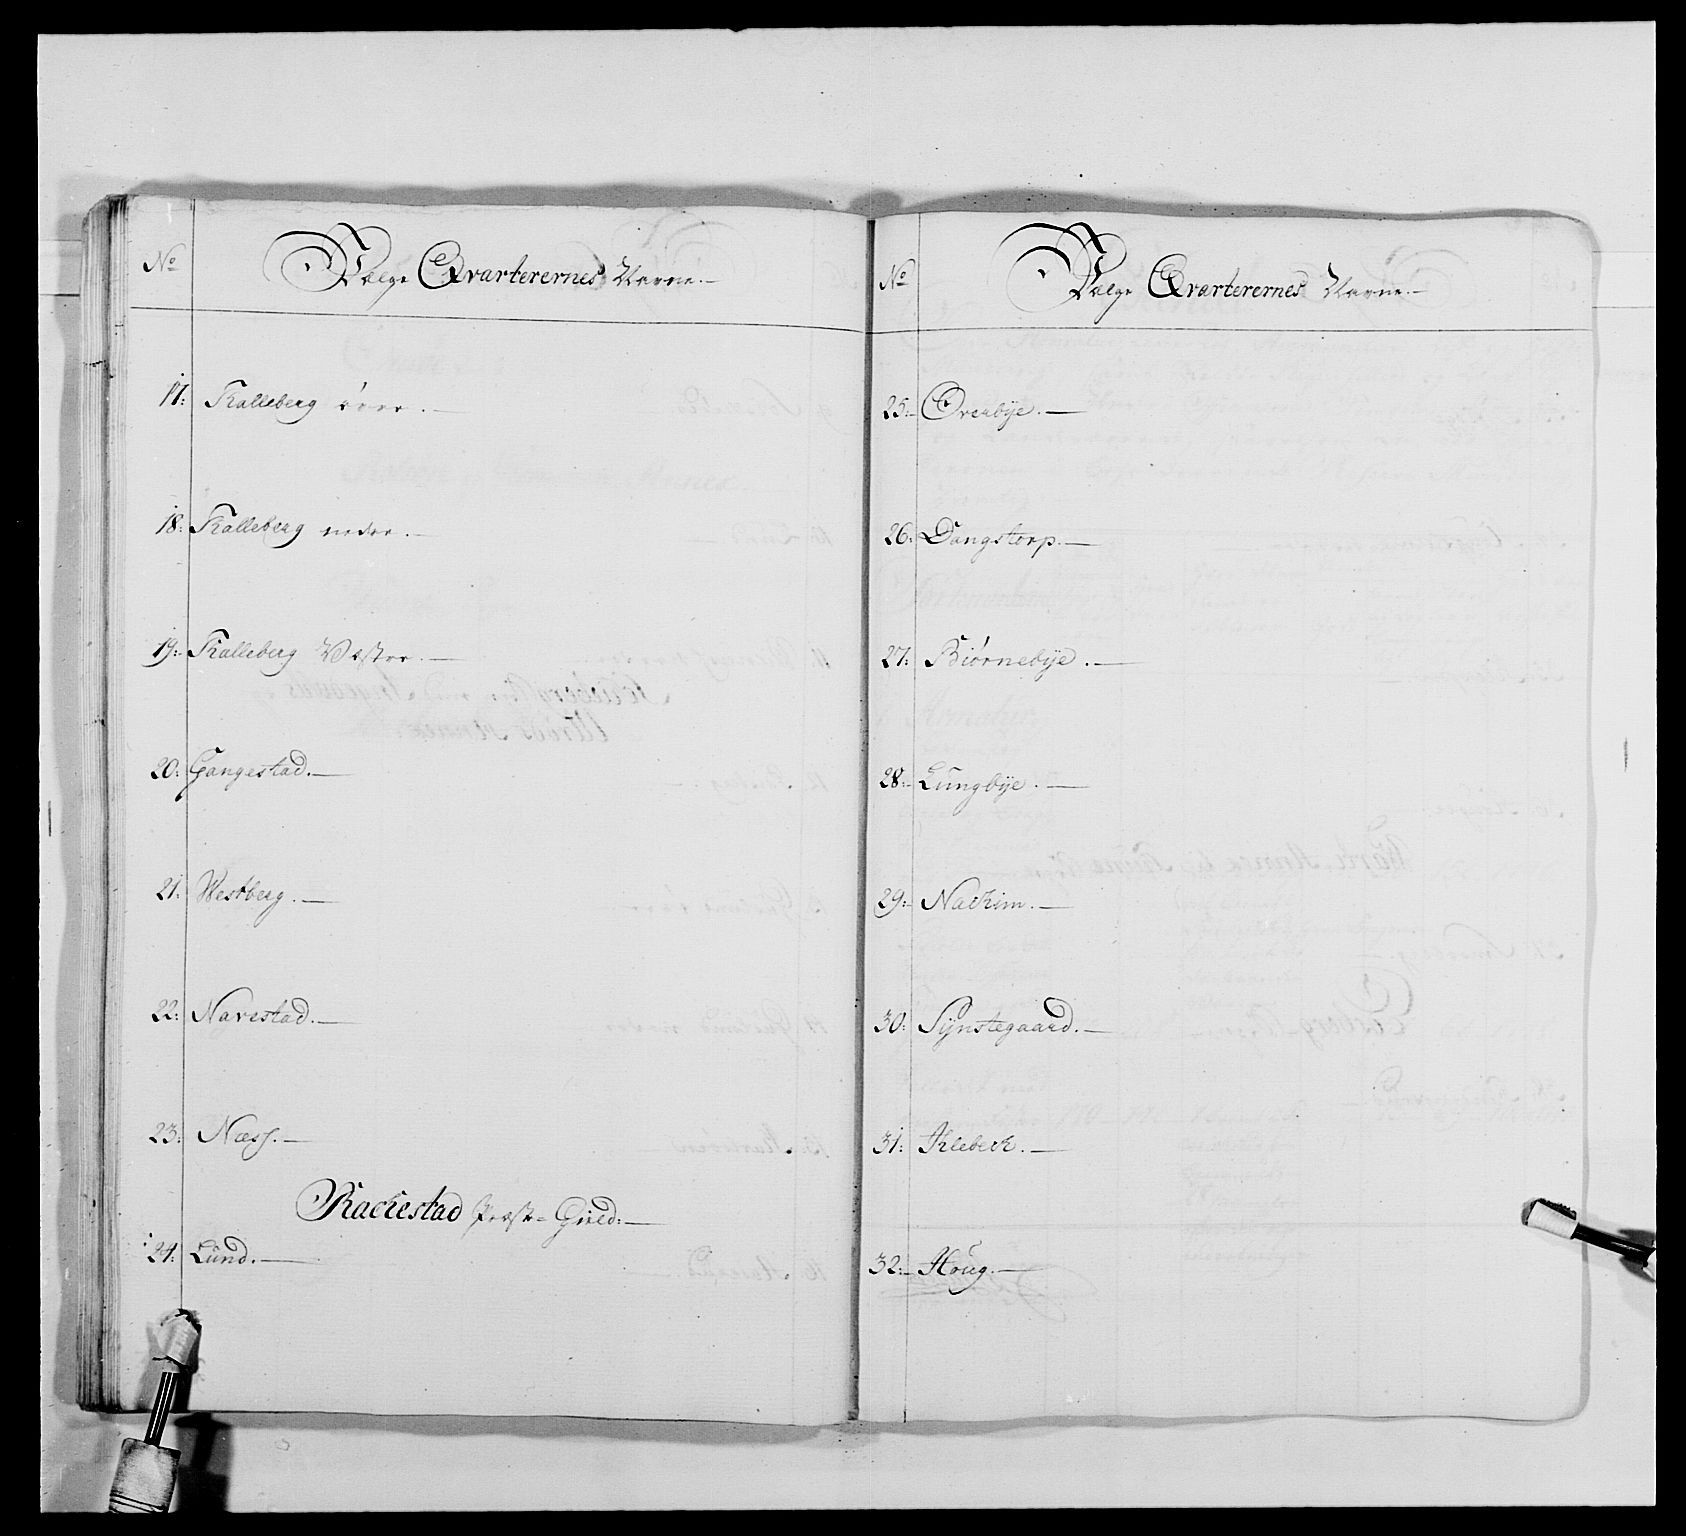 No
Følge Qvarterernes Navne.
17: Kalleberg över.
18: Kalleberg neder.
19: Kalleberg Vester.
20: Gangestad.
21: Westberg.
22: Navestad.
23: Næss.
Rackestad Præste-Gield:
24: Lund.
No
Følge Qvarterernes Navne.
25: Overbye.
26: Dangstorp.
27: Biörnebye.
28: Lungbye.
29: Nackim.
30: Synstegaard.
31: Klebeck.
32: Houg.